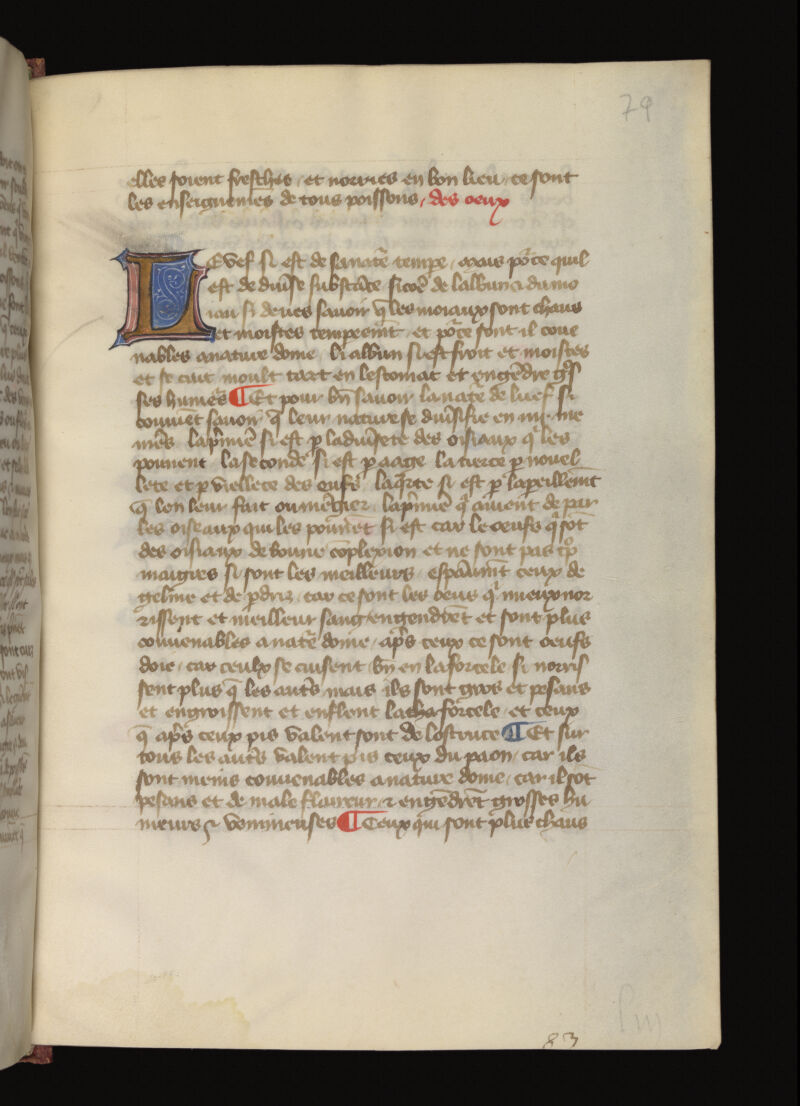 79
elles soient fresches / et norries en bon lieu / ce sont
les enseignemēs de tous poissons / des oeux
Levef si est de sa natᵉ tempe / mais pᵒce quil
est de diuˢse substāce sicōe de lalbun a du mo
iau si deues sauoir q̄ les moiaux sont chaus
et moistes tempeemᵗ et pᵒce sont il coue
nables a nature dome / li albun si est froit et moistes
et se cuit moult tart en lestomat et engendre gᵒs
ses humeˢs ¶ Et pour bn̄ sauoir la natᵉ de luef si
couuiēt sauoir q̄ leur nature se diuˢsifie en .iiij. me
niēs la pᵐiere si est p̄ la diuˢsete des oisiaux qⁱ les
ponnent la seconde si est p̄ aage la tierce p̄ nouel
lete et p̄ viellece des oufs / la qᵃrte si est p̄ lapeillemᵗ
q̄ len leur fait ou mēgier / la pᵐiere qⁱ auient de par
les oiseaux qui les pōnēt si est car le oeufs qⁱ sōt
des oisiaux de bonne cōplexion et ne sont pas tᵒp
maigres si sont les meilleurs / espāumᵗ ceux de
geline et de p̄driz / car ce sont les oeus qⁱ mieux nor
rissent et meilleur sang engendrēt et sont plus
couuenables a natᵉ dome / apˢs ceux ce sont oeufs
doie / car ceulx se cuisent bn̄ en la forcele si norris
sent plus q̄ les autˢs mais ils sont gros et pesans
et engroissent et enflent la cha forcele / et ceux
q̄ apˢs ceux pis valent sont de lostruce ¶ Et sur
tous les autˢs valent pis ceux du paon / car ils
sont meins conuenables a nature dome / car il sōt
pesans et de male flaireur / ⁊ engēdrēt grosses hu
meurs ⁊ venimeuses ¶ Ceux qui sont plus chaus
83